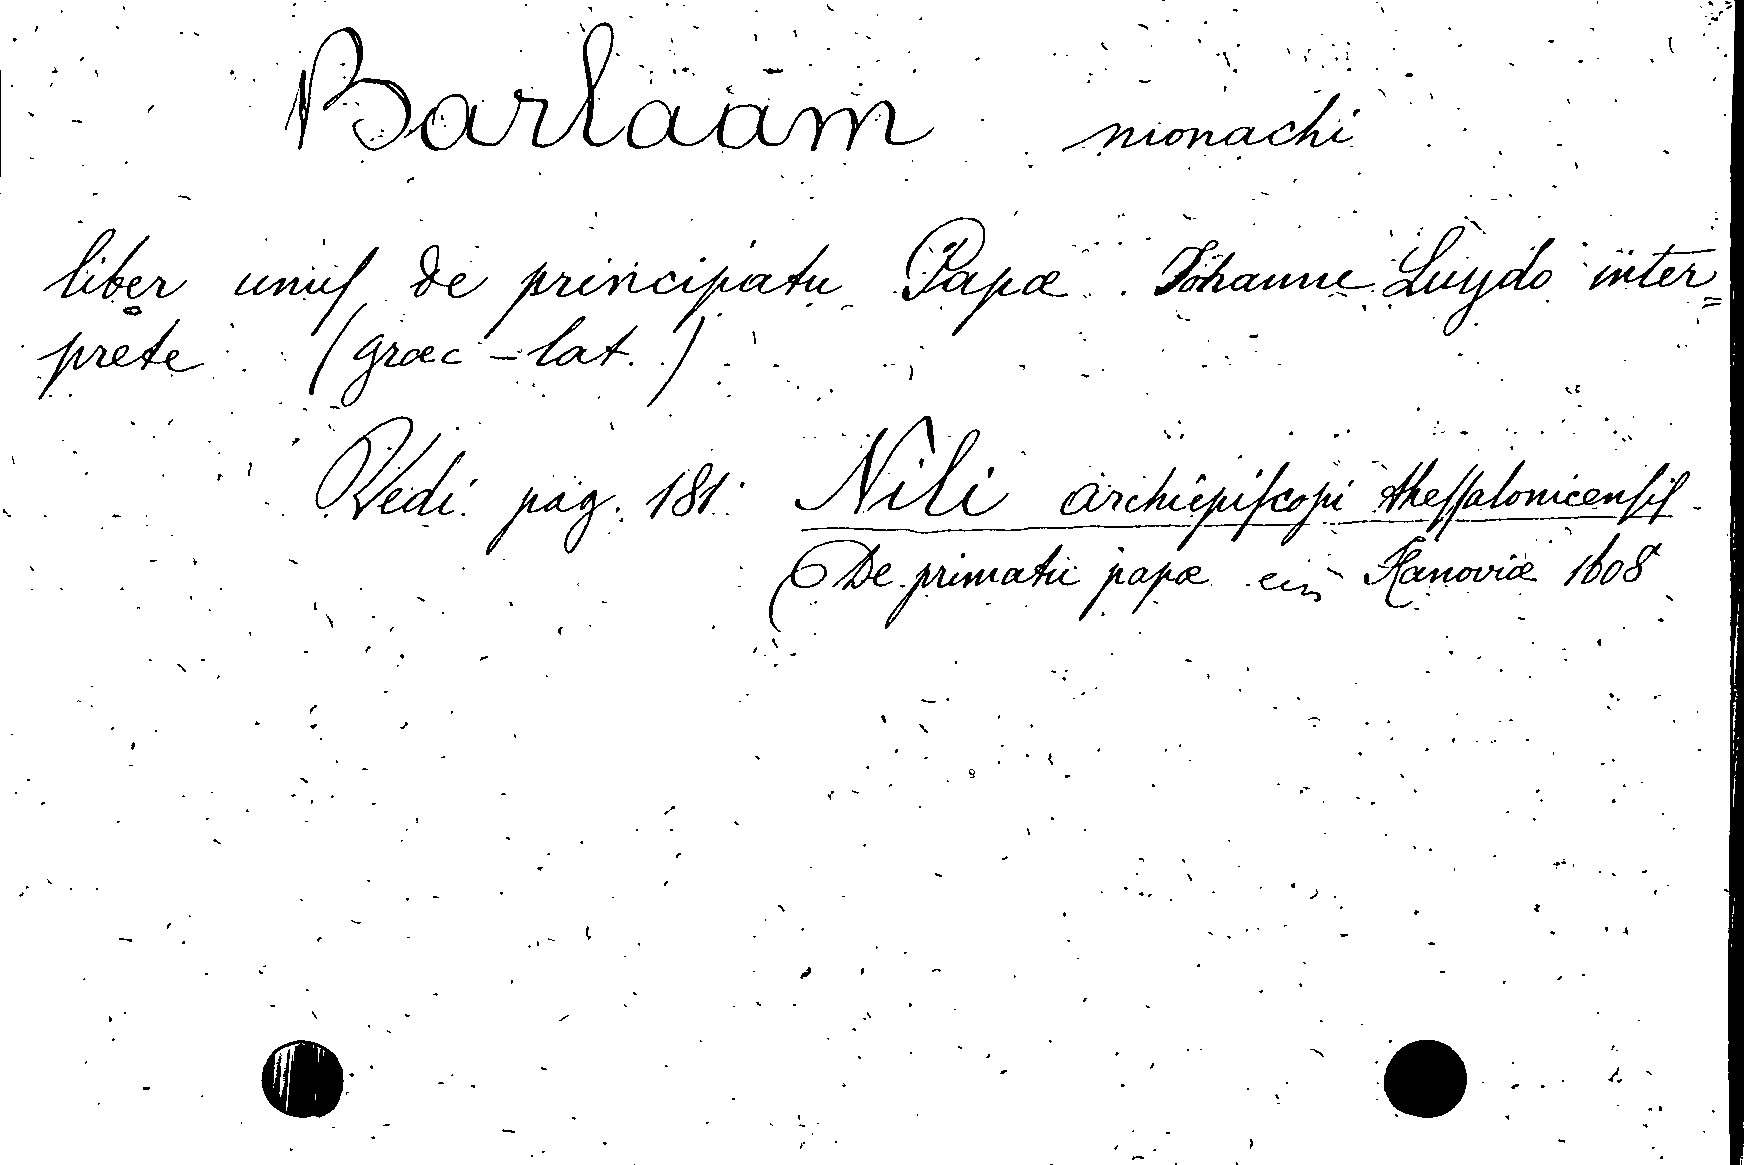 Barlaam monachi
liber unuſ de principatu Papæ. Johanne Luydo inter=
prete (græc-lat.)
Vedi pag. 181: Nili archiepiſcopi theſſalonicenſiſ
De primatu papæ Hanoviæ 1608